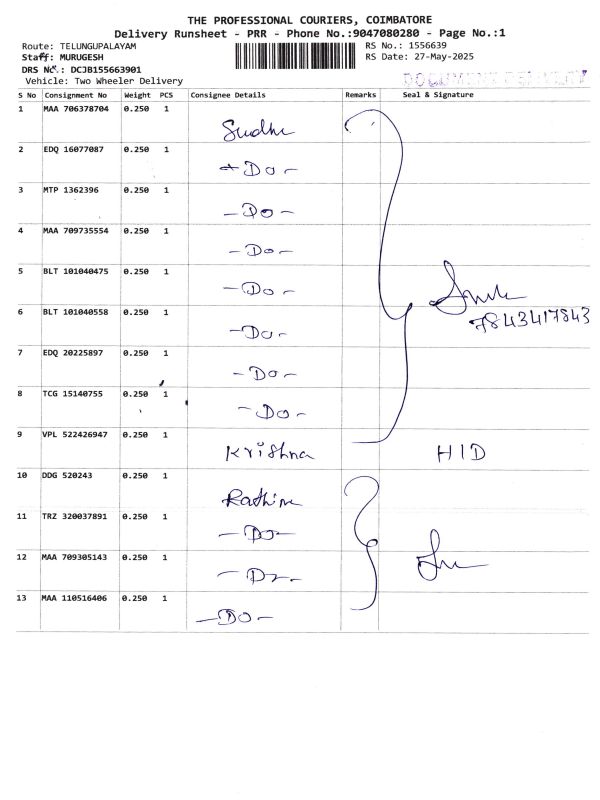 THE PROFESSIONAL COURIERS, COIMBATORE
Delivery Runsheet - PRR - Phone No.:9047080280 - Page No.:1
Route: TELUNGUPALAYAM RS No.: 1556639
Staff: MURUGESH RS Date: 27-May-2025
DRS No.: DCJB155663901
Vehicle: Two Wheeler Delivery
DOCUMENT DELIVERY
S No Consignment No Weight PCS Consignee Details Remarks Seal & Signature
1 MAA 706378704 0.250 1 Sudhi
2 EDQ 16077087 0.250 1 -Do-
3 MTP 1362396 0.250 1 -Do-
4 MAA 709735554 0.250 1 -Do-
5 BLT 101040475 0.250 1 -Do-
7843417843
6 BLT 101040558 0.250 1 -Do-
7 EDQ 20225897 0.250 1 -Do-
8 TCG 15140755 0.250 1 -Do-
9 VPL 522426947 0.250 1 Krishna HID
10 DDG 520243 0.250 1
11 TRZ 320037891 0.250 1 -Do-
12 MAA 709305143 0.250 1 -Do-
13 MAA 110516406 0.250 1 -Do-